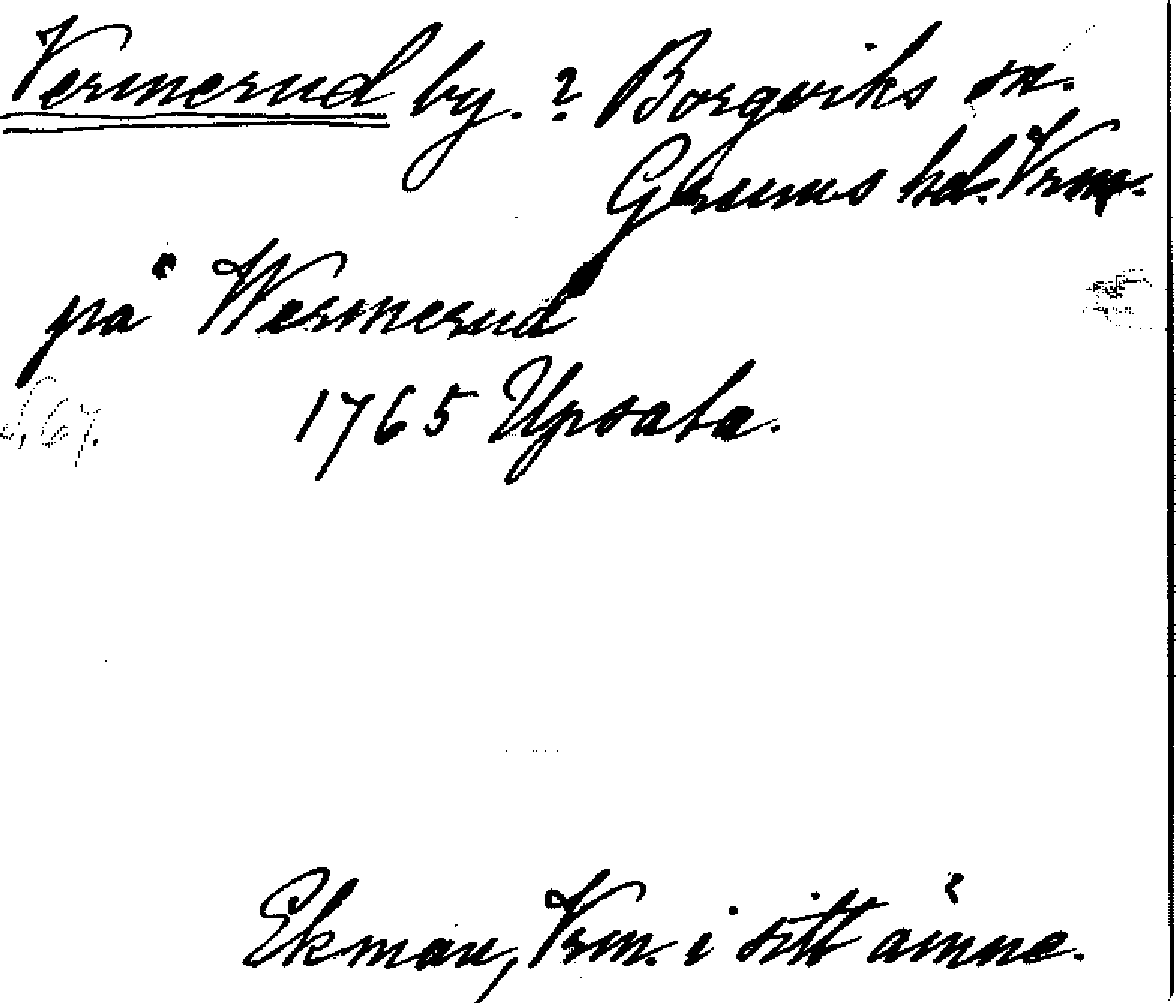 Vermerud by. ? Borgviks sn.
Grums hd. Vrm.
på Wermerud
s. 67. 1765 Upsala.
Ekman, Vrm. i sitt ämne.